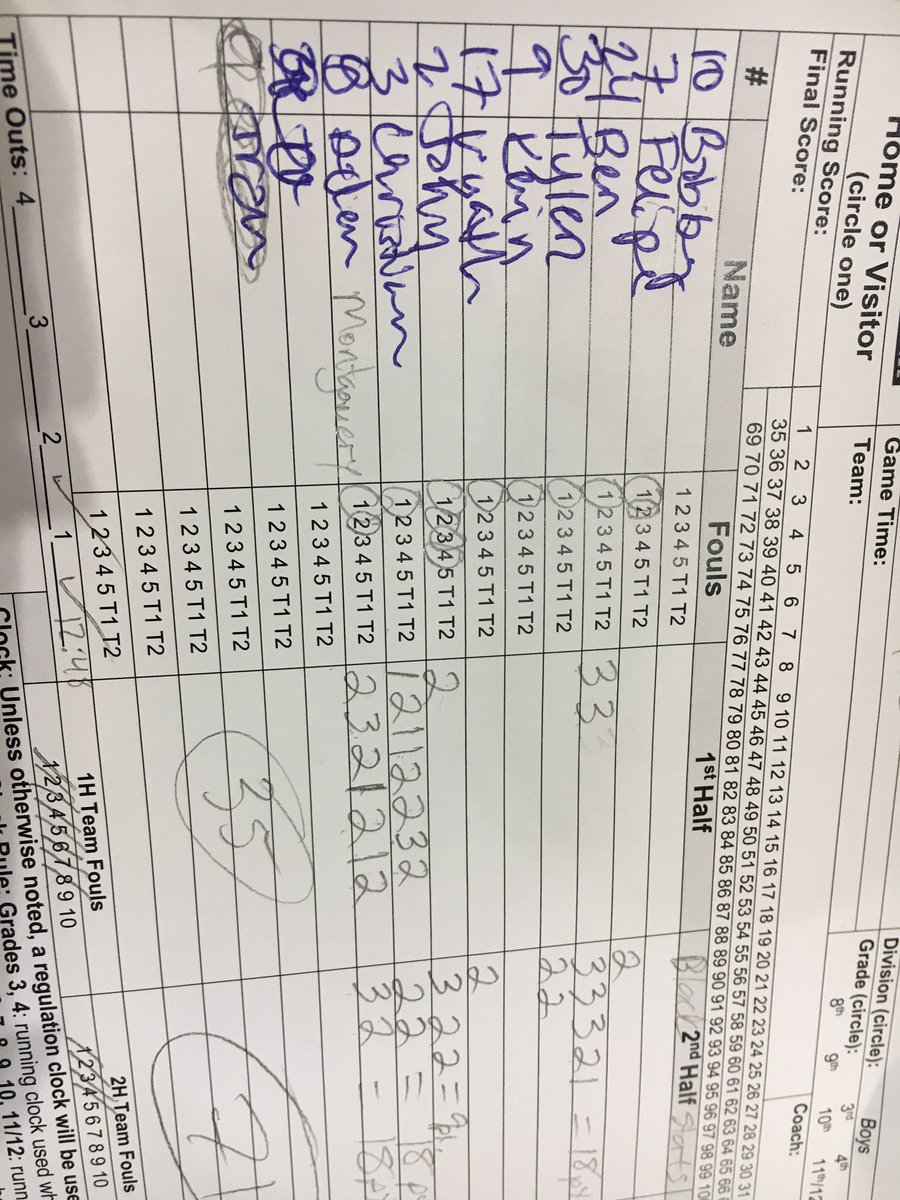 Home or Visitor
(circle one)
Game Time:
Team:
Division (circle): Boys
Grade (circle): 3rd 4th
8th 9th 10th 11th/12
Coach:
Running Score:
Final Score:
1 2 3 4 5 6 7 8 9 10 11 12 13 14 15 16 17 18 19 20 21 22 23 24 25 26 27 28 29 30 31
35 36 37 38 39 40 41 42 43 44 45 46 47 48 49 50 51 52 53 54 55 56 57 58 59 60 61 62 63 64 65 66
69 70 71 72 73 74 75 76 77 78 79 80 81 82 83 84 85 86 87 88 89 90 91 92 93 94 95 96 97 98 99 10
# Name Fouls 1st Half Black 2nd Half Stats
10 Bobby 1 2 3 4 5 T1 T2
7 Felipe 1 2 3 4 5 T1 T2 2
24 Ben 1 2 3 4 5 T1 T2 3 3 3 3 3 2 1 = 18
30 Tyler 1 2 3 4 5 T1 T2 2 2
9 Kevin 1 2 3 4 5 T1 T2
17 1 2 3 4 5 T1 T2 2
2 John 1 2 3 4 5 T1 T2 2 3 2 2 = 9
3 Christian 1 2 3 4 5 T1 T2 1 2 1 1 2 2 3 2 2 2 = 18
8 Aden Montgomery 1 2 3 4 5 T1 T2 2 3 2 1 2 1 2 3 2 = 18
1 2 3 4 5 T1 T2
1 2 3 4 5 T1 T2
1 2 3 4 5 T1 T2 35
1 2 3 4 5 T1 T2
1 2 3 4 5 T1 T2
1 2 3 4 5 T1 T2
Time Outs: 4 3 2 1 12:48
1H Team Fouls
1 2 3 4 5 6 7 8 9 10
2H Team Fouls
1 2 3 4 5 6 7 8 9 10
Clock: Unless otherwise noted, a regulation clock will be use
Rule: Grades 3, 4: running clock used wh
9, 10, 11/12: runn